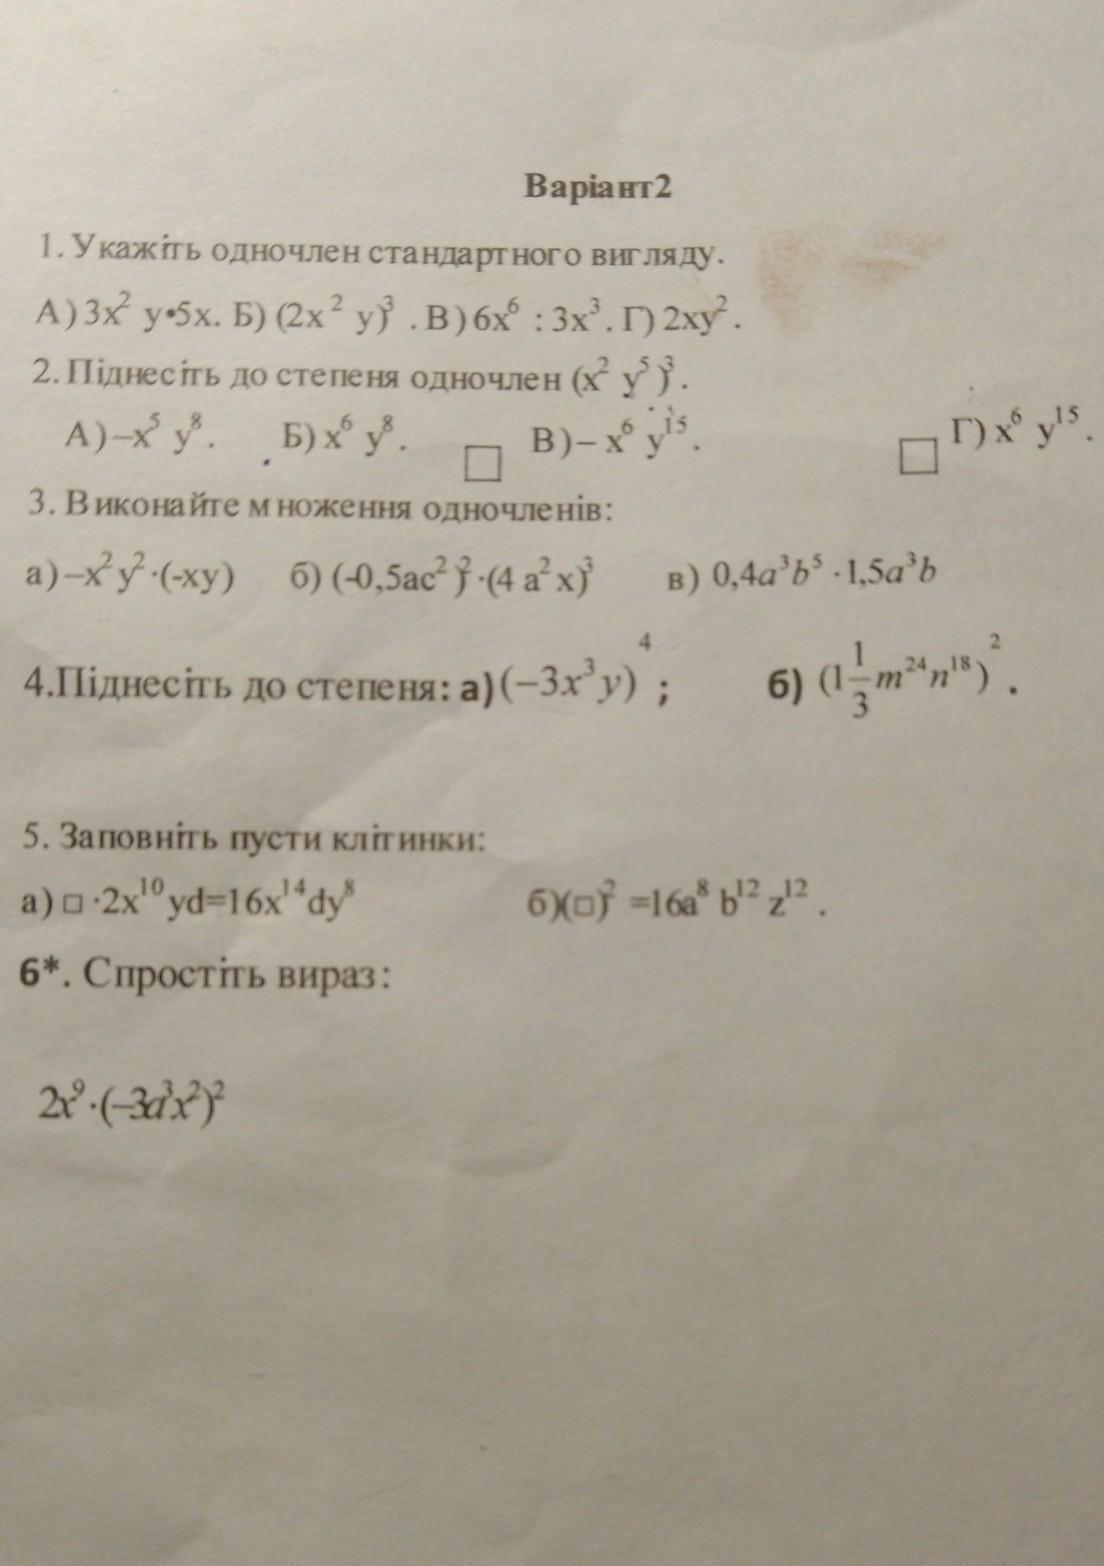 Варіант2
1. Укажіть одночлен стандартного вигляду.
А) 3x² y•5x. Б) (2x² y)³ . В) 6x⁶ : 3x³. Г) 2xy².
2. Піднесіть до степеня одночлен (x² y⁵ )³ .
А) –x⁵ y⁸. Б) x⁶ y⁸. □ В) – x⁶ y¹⁵. □ Г) x⁶ y¹⁵.
3. Виконайте множення одночленів:
а) –x² y² ·(-xy) б) (-0,5ac² )² ·(4 a² x)³ в) 0,4a³b⁵ · 1,5a³b
4.Піднесіть до степеня: а) (–3x³y)⁴ ; б) (1 1/3 m²⁴n¹⁸)² .
5. Заповніть пусти клітинки:
а) □ ·2x¹⁰ yd=16x¹⁴dy⁸ б)(□)² =16a⁸ b¹² z¹² .
6*. Спростіть вираз:
2x⁹·(–3a³x²)²